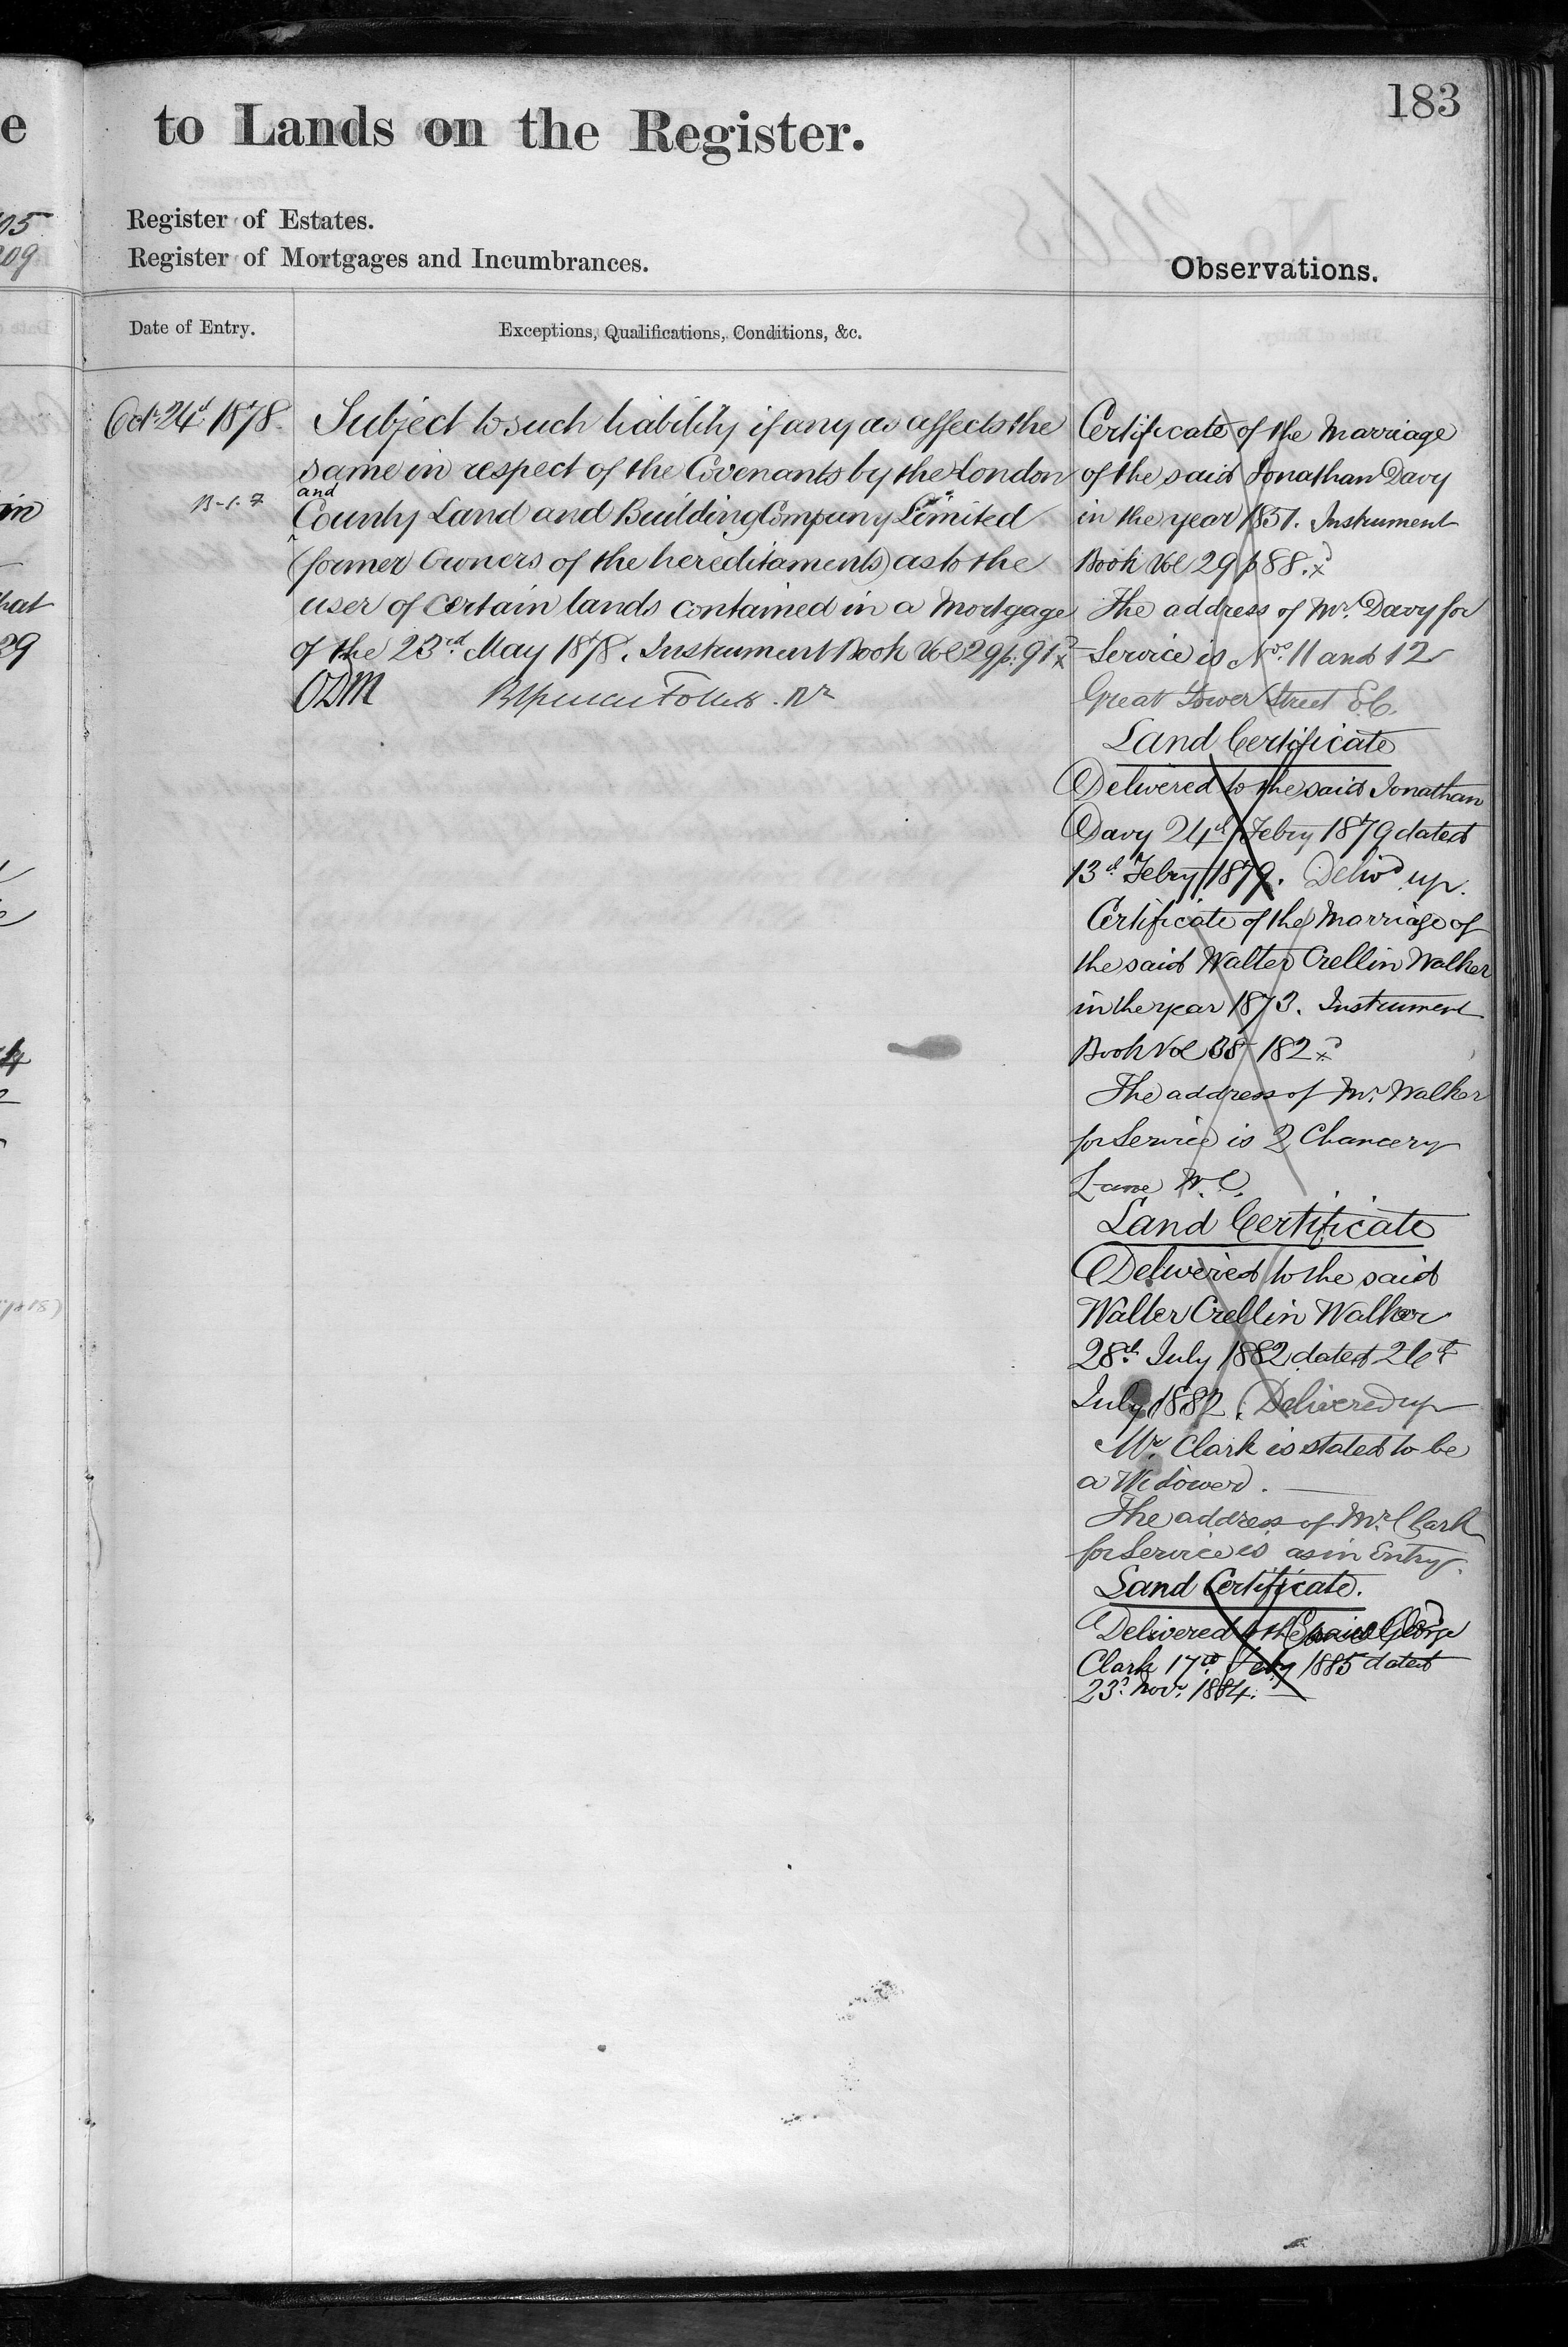 183
to Lands on the Register.
Register of Estates.
Register of Mortgages and Incumbrances.
Observations.
Date of Entry.
Exceptions, Qualifications, Conditions, &c.
Octr. 24th 1878.
Subject to such liability if any as affects the
same in respect of the Covenants by the London
and
County Land and Building Company Limited
(former Owners of the hereditaments) as to the
user of certain lands contained in a Mortgage
of the 23rd May 1878. Instrument Book Vol 29 p. 91
ODM
Certificate of the Marriage
of the said Jonathan Davy
in the year 1851. Instrument
Book Vol 29 p 88.
The address of Mr. Davy for
Service is Nos. 11 and 12
Great Tower Street E.C.
Land Certificate
Delivered to the said Jonathan
Davy 24th Febry 1879 dated
13th Febry 1879. Delivd up.
Certificate of the Marriage of
the said Walter Crellin Walker
in the year 1873. Instrument
Book Vol 38 182
The address of Mr. Walker
for Service is 2 Chancery
Lane W.C.
Land Certificate
Delivered to the said
Walter Crellin Walker
28th July 1882 dated 26th
July 1882. Delivered up
Mr. Clark is stated to be
a Widower.
The address of Mr. Clark
for Service is as in Entry.
Land Certificate.
Delivered to the said George
Clark 17th Feby 1885 dated
23d Novr. 1884.